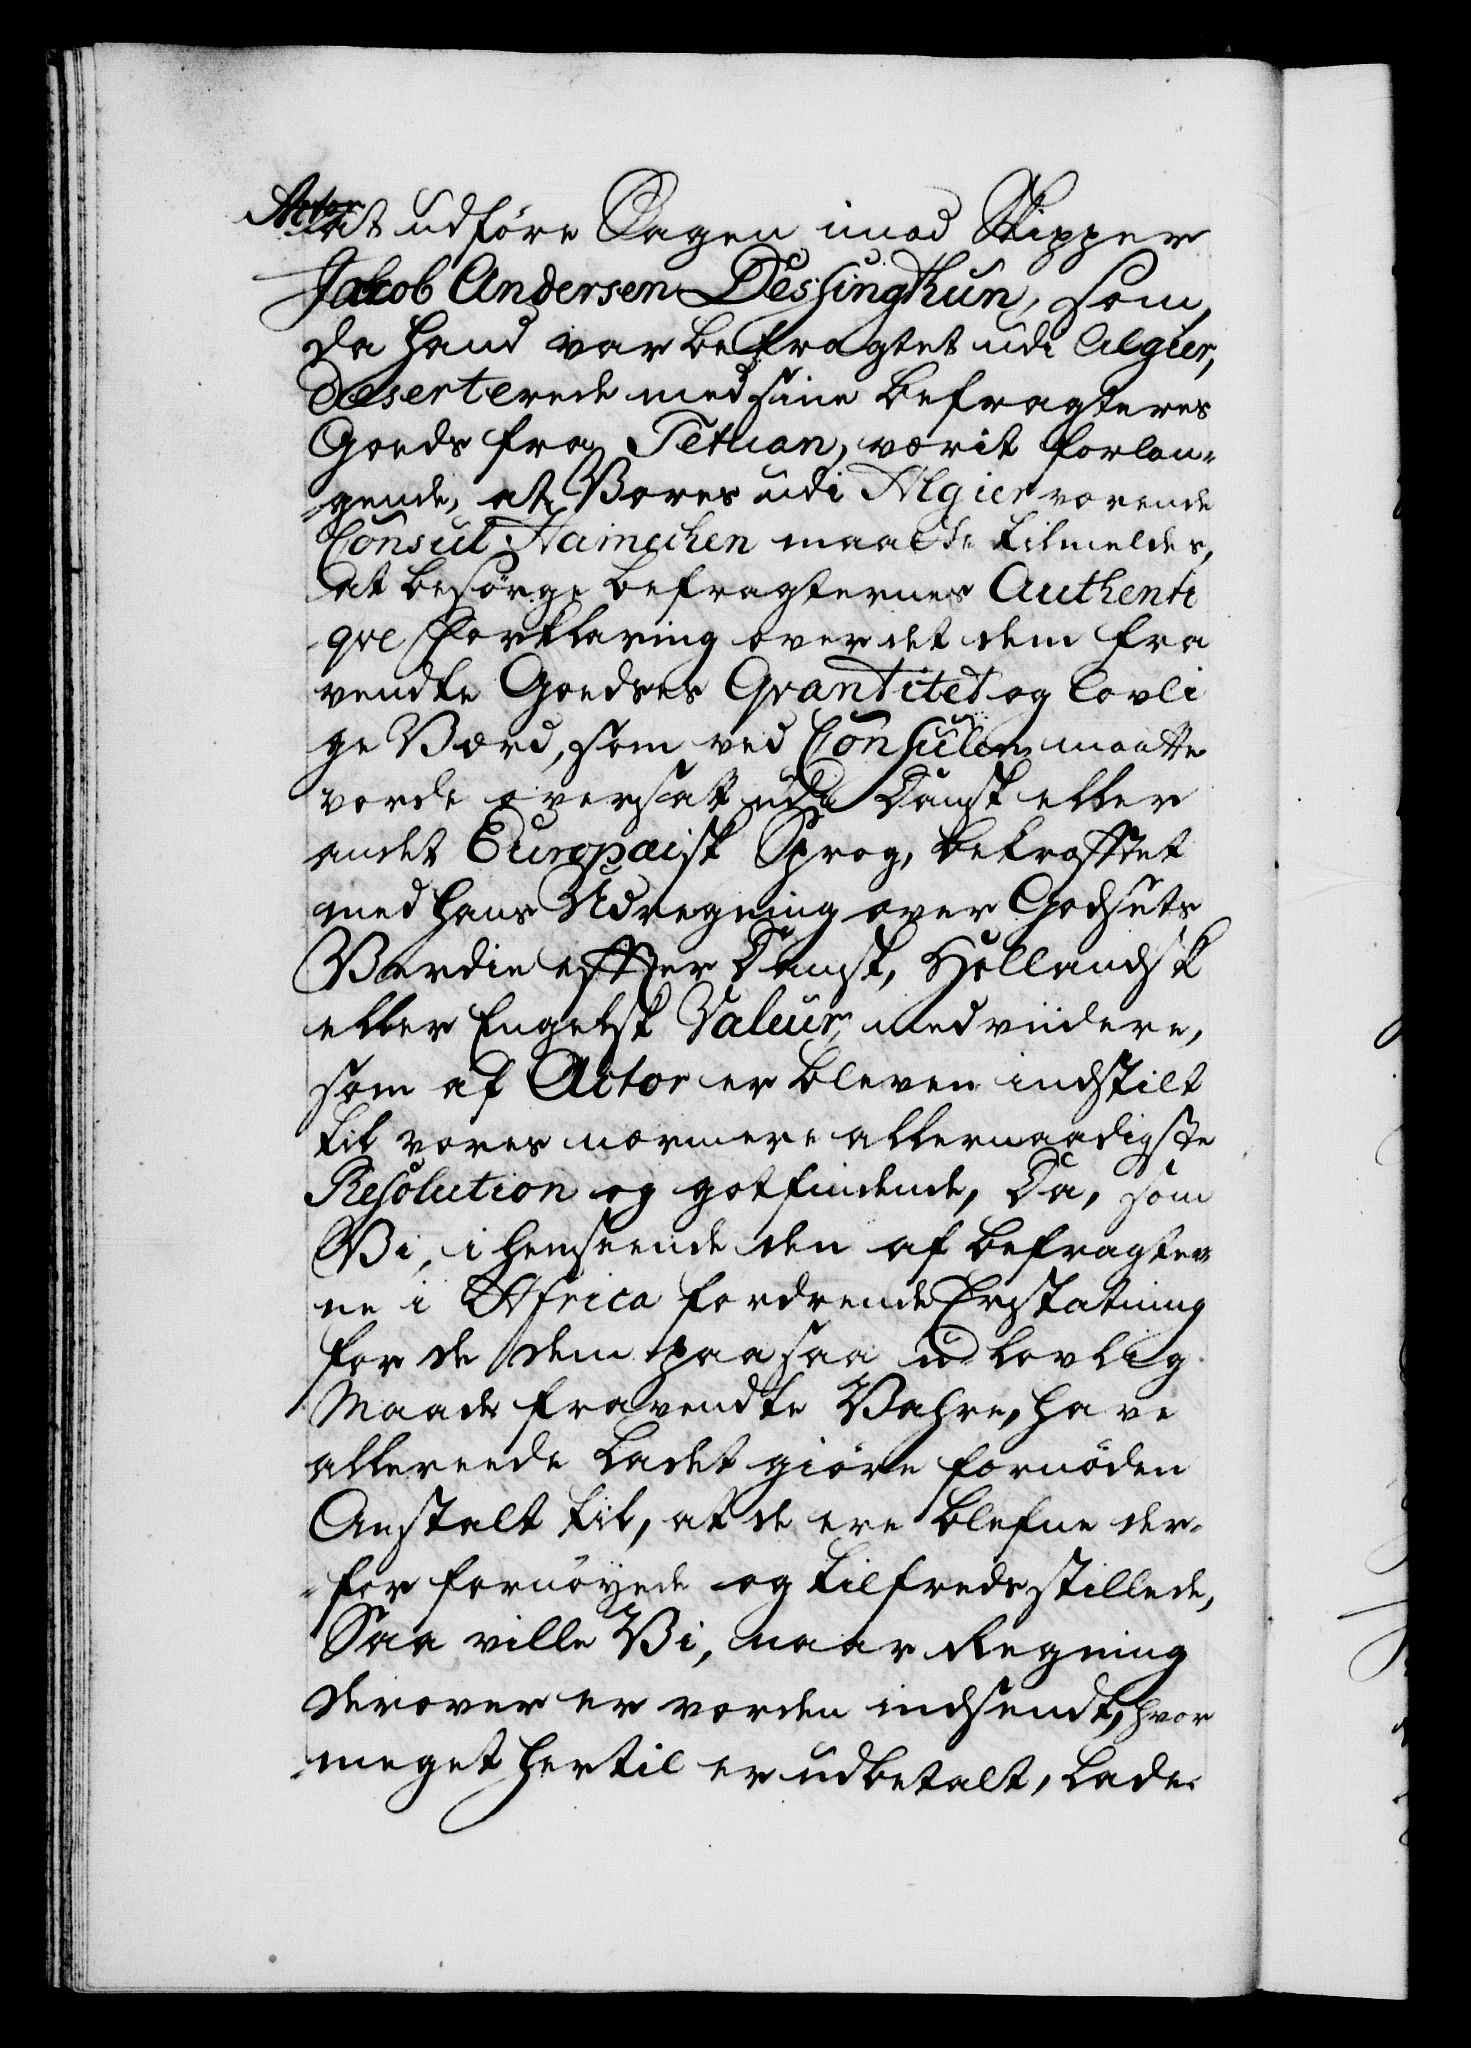 Actor
at udföre Sagen imod Skipper
Jacob Andersen Dessingthun, som,
da hand var befragtet udi Algier,
deserterede med sine Befragteres
Goeds fra Tetuan, værit forlan-
gende, at Vores udi Algier værende
Consul Hameken maatte tilmeldes,
at besörge Befragternes Authenti
qve Forklaring over det dem fra
vendte Goedses Qvantitet og lovli
ge Værd, som ved Consulen maatte
vorde oversatt udi Dansk eller
andet Europæisk Sprog, bekræfftet
med hans Udregning over Godsets
Værdie effter Dansk, Hollandsk
eller Engelsk Valeur, med viidere,
som af Actor er bleven indstilt
til vores nærmere allernaadigste
Resolution og gotfindende, Da, som
Vi, i henseende den af Befragter
ne i Africa fordrende Erstatning
for de dem paa saa ulovlig
Maade fravendte Vahre, have
allereede ladet giöre fornöden
Anstalt til, at de ere blefne der-
for fornöyede og tilfredsstillede,
Saa ville Vi, naar Regning
derover er vorden indsendt, hvor
meget hertil er udbetalt, lade